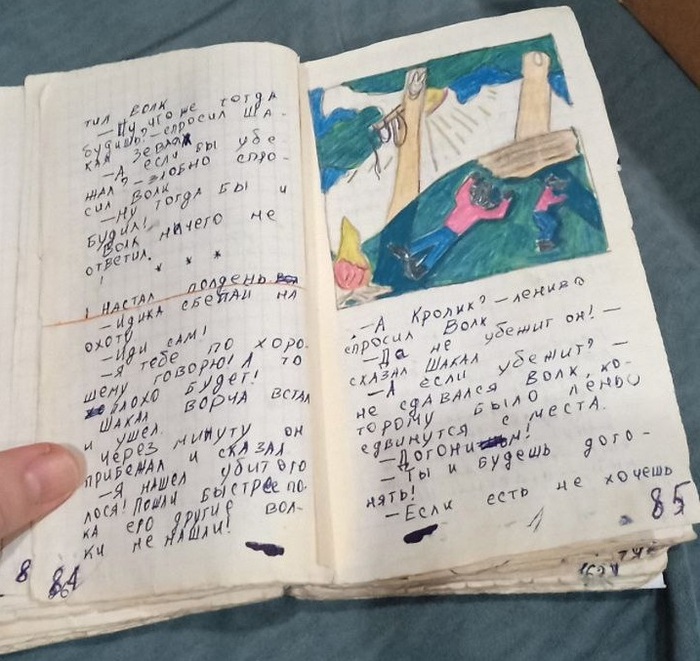 тил волк
—Ну что же тогда
будишь?—спросил ша-
кал зевая
—А если бы убе
жал?—злобно спро-
сил волк
—Ну тогда бы и
будил!
Волк ничего не
ответил.
* * *
Настал полдень
—Идика сбегай на
охоту
—Иди сам!
—Я тебе по хоро.
шему говорю! А то
плохо будет!
Шакал ворча встал
и ушел.
через минуту он
прибежал и сказал
—Я нашел убитого
лося! Пошли быстрее по.
ка его другие вол-
ки не нашли!
84
8
—А Кролик?—лениво
спросил Волк
—Да не убежит он!—
сказал Шакал
—А если убежит?—
не сдавался Волк, ко-
торому было лень
сдвинутся с места.
—Догони
—Ты и будешь дого-
нять!
—Если есть не хочешь
85